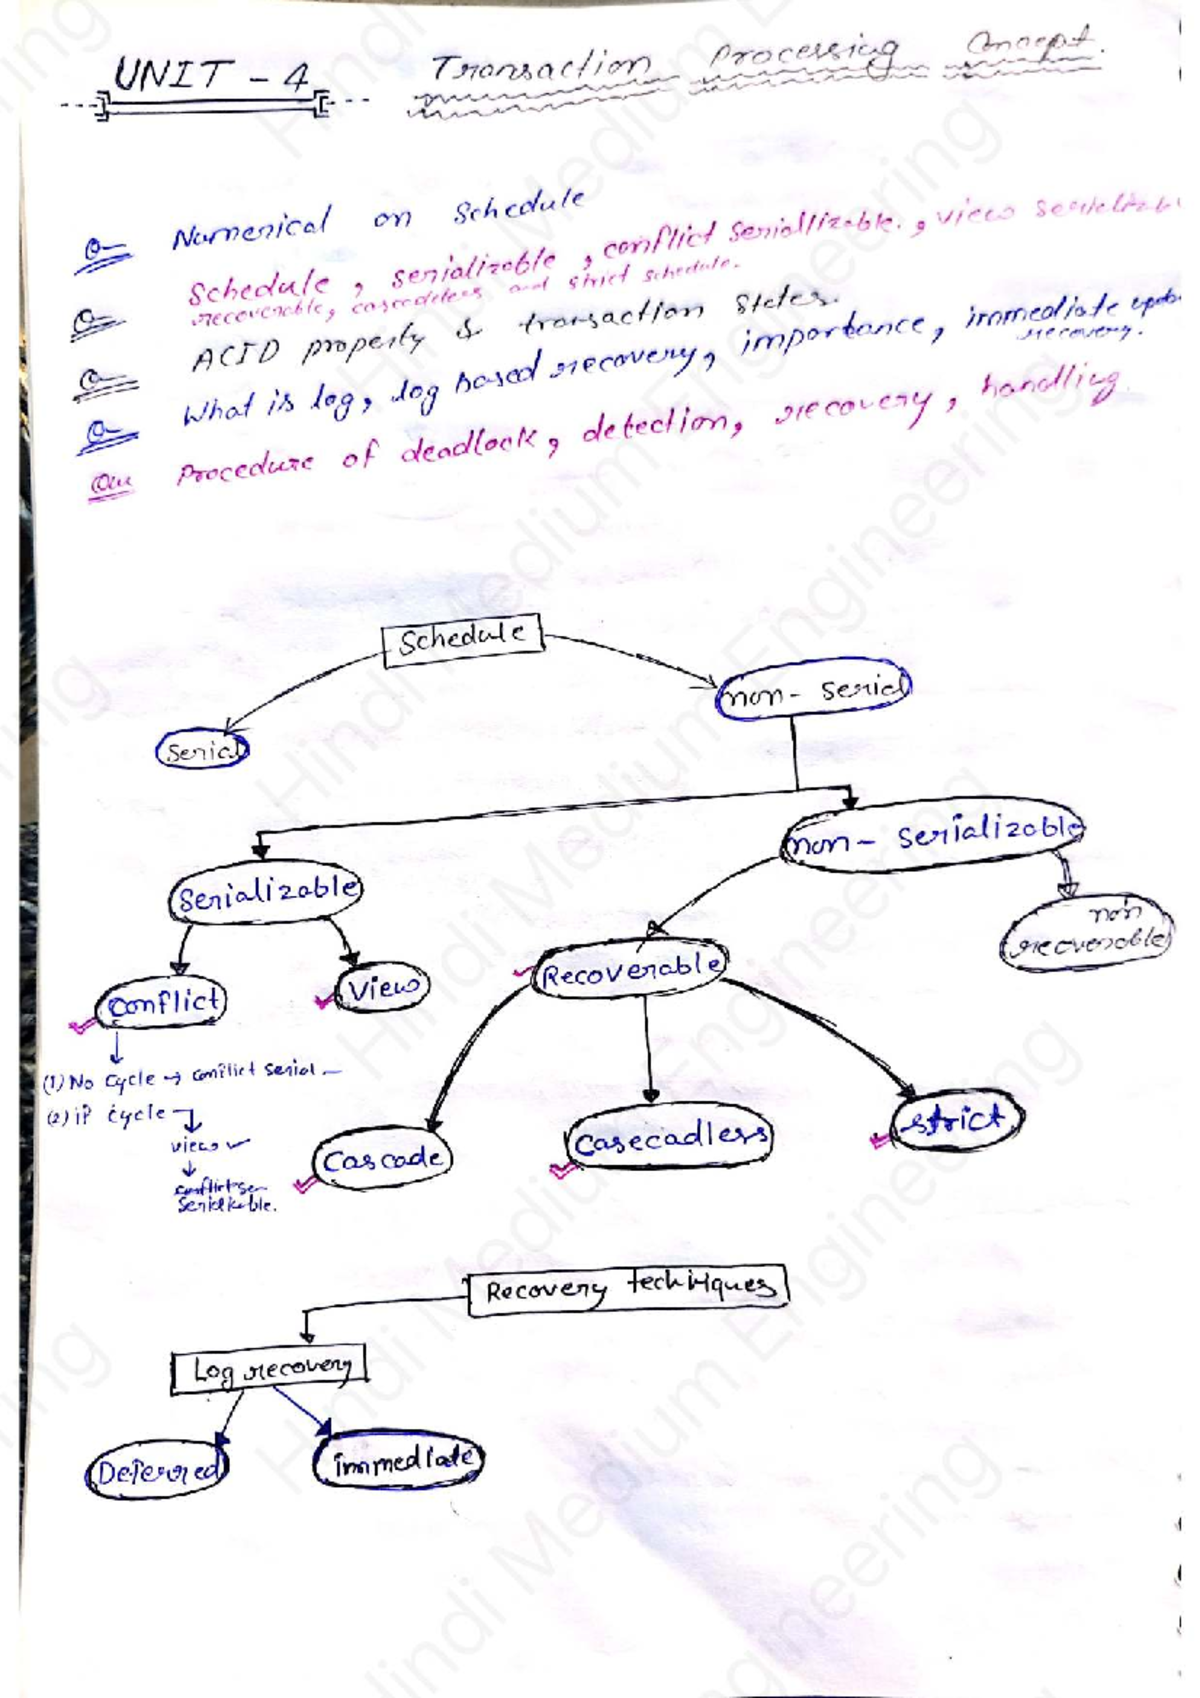 UNIT - 4 Transaction Processing Concept.
Q Numerical on Schedule
Q Schedule, serializable, conflict Seriallizable., view
recoverable, cascadeless and strict schedule.
Q ACID property & transaction States.
Q What is log, log based recovery, importance, immediate
recovery.
Que Procedure of deadlock, detection, recovery, handling
Schedule
non - serial
Serial
non - Serializable
Serializable
non
recoverable
Recoverable
View
Conflict
(1) No Cycle → conflict serial
(2) if cycle
view
strict
Casecadless
Cascade
Recovery techniques
Log recovery
Deferred
immediate
Hindi Medium Engineering